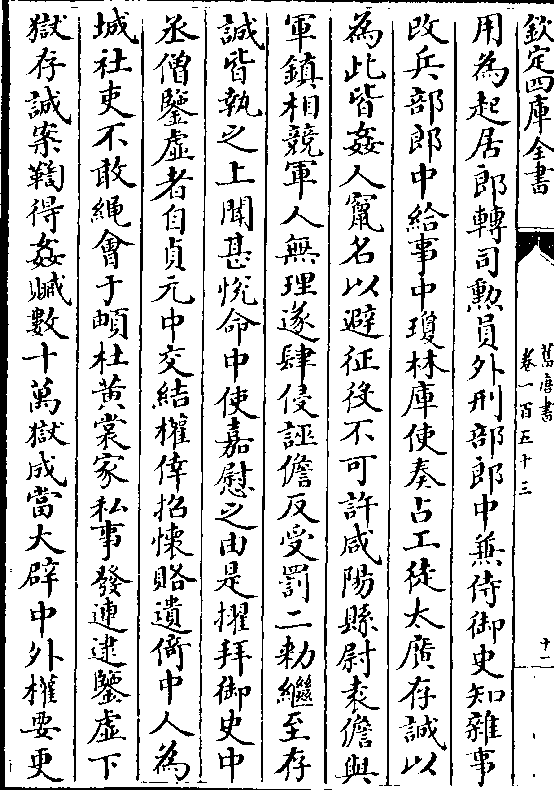 欽定四庫全書
舊唐書
卷一百五十三
十一
用為起居郎轉司勲員外刑部郎中兼侍御史知雜事
改兵部郎中給事中瓊林庫使奏占工徒太廣存誠以
為此皆姦人竄名以避征役不可許咸陽縣尉袁儋與
軍鎮相競軍人無理遂肆侵誣儋反受罰二勅繼至存
誠皆執之上聞甚悅命中使嘉慰之由是擢拜御史中
丞僧鑒虛者自貞元中交結權倖招懷賂遺衛中人為
城社吏不敢繩會于頔杜黃裳家私事發連逮鑒虛下
獄存誠案鞫得姦贓數十萬獄成當大辟中外權要更